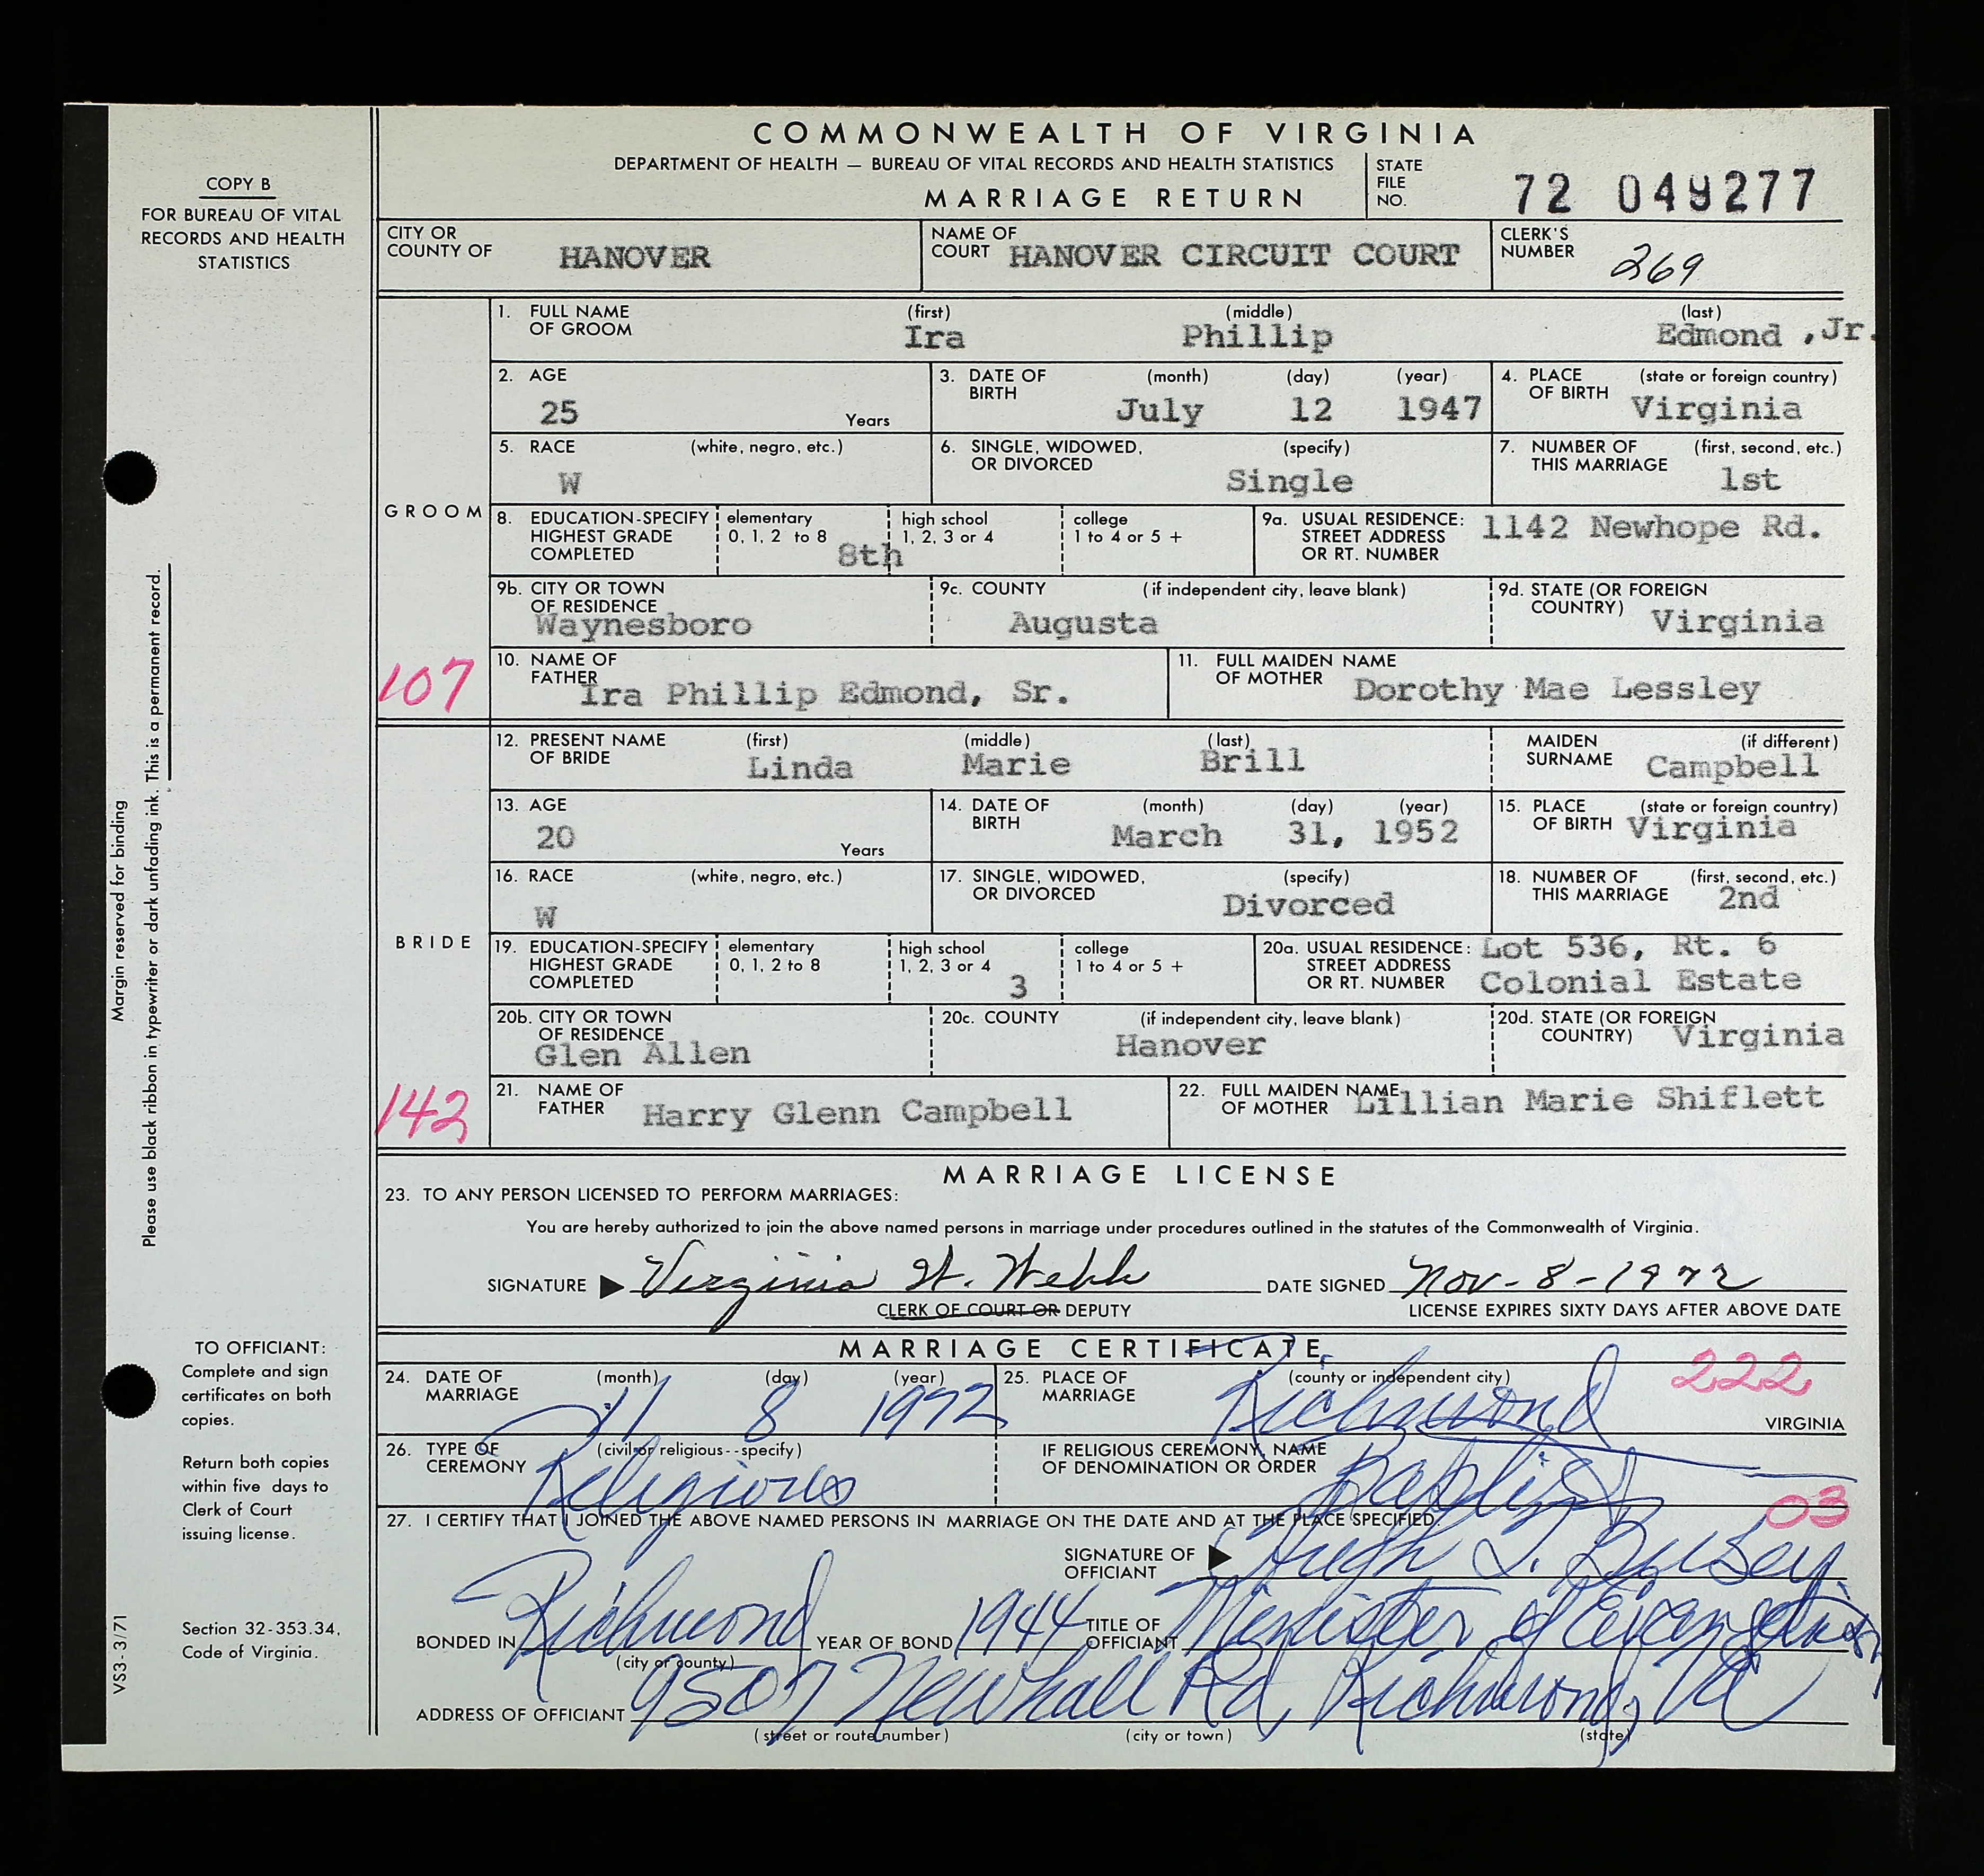 COMMONWEALTH OF VIRGINIA
DEPARTMENT OF HEALTH — BUREAU OF VITAL RECORDS AND HEALTH STATISTICS
MARRIAGE RETURN
STATE FILE NO. 72 049277
COPY B
FOR BUREAU OF VITAL
RECORDS AND HEALTH
STATISTICS
CITY OR COUNTY OF HANOVER
NAME OF COURT HANOVER CIRCUIT COURT
CLERK'S NUMBER 269
GROOM
107
1. FULL NAME OF GROOM (first) Ira (middle) Phillip (last) Edmond ,Jr.
2. AGE 25 Years
3. DATE OF BIRTH (month) July (day) 12 (year) 1947
4. PLACE OF BIRTH (state or foreign country) Virginia
5. RACE (white, negro, etc.) W
6. SINGLE, WIDOWED, OR DIVORCED (specify) Single
7. NUMBER OF THIS MARRIAGE (first, second, etc.) 1st
8. EDUCATION-SPECIFY HIGHEST GRADE COMPLETED elementary 0, 1, 2 to 8 8th high school 1, 2, 3 or 4 college 1 to 4 or 5 +
9a. USUAL RESIDENCE: STREET ADDRESS OR RT. NUMBER 1142 Newhope Rd.
9b. CITY OR TOWN OF RESIDENCE Waynesboro
9c. COUNTY (if independent city, leave blank) Augusta
9d. STATE (OR FOREIGN COUNTRY) Virginia
10. NAME OF FATHER Ira Phillip Edmond, Sr.
11. FULL MAIDEN NAME OF MOTHER Dorothy Mae Lessley
BRIDE
142
12. PRESENT NAME OF BRIDE (first) Linda (middle) Marie (last) Brill
MAIDEN SURNAME (if different) Campbell
13. AGE 20 Years
14. DATE OF BIRTH (month) March (day) 31, (year) 1952
15. PLACE OF BIRTH (state or foreign country) Virginia
16. RACE (white, negro, etc.) W
17. SINGLE, WIDOWED, OR DIVORCED (specify) Divorced
18. NUMBER OF THIS MARRIAGE (first, second, etc.) 2nd
19. EDUCATION-SPECIFY HIGHEST GRADE COMPLETED elementary 0, 1, 2 to 8 high school 1, 2, 3 or 4 3 college 1 to 4 or 5 +
20a. USUAL RESIDENCE: STREET ADDRESS OR RT. NUMBER Lot 536, Rt. 6 Colonial Estate
20b. CITY OR TOWN OF RESIDENCE Glen Allen
20c. COUNTY (if independent city, leave blank) Hanover
20d. STATE (OR FOREIGN COUNTRY) Virginia
21. NAME OF FATHER Harry Glenn Campbell
22. FULL MAIDEN NAME OF MOTHER Lillian Marie Shiflett
MARRIAGE LICENSE
23. TO ANY PERSON LICENSED TO PERFORM MARRIAGES:
You are hereby authorized to join the above named persons in marriage under procedures outlined in the statutes of the Commonwealth of Virginia.
SIGNATURE Virginia H. Webb DATE SIGNED Nov-8-1972
CLERK OF COURT OR DEPUTY LICENSE EXPIRES SIXTY DAYS AFTER ABOVE DATE
MARRIAGE CERTIFICATE
24. DATE OF MARRIAGE (month) 11 (day) 8 (year) 1972
25. PLACE OF MARRIAGE (county or independent city) Richmond 222 VIRGINIA
26. TYPE OF CEREMONY (civil or religious--specify) Religious
IF RELIGIOUS CEREMONY, NAME OF DENOMINATION OR ORDER Baptist
03
27. I CERTIFY THAT I JOINED THE ABOVE NAMED PERSONS IN MARRIAGE ON THE DATE AND AT THE PLACE SPECIFIED.
SIGNATURE OF OFFICIANT Hugh L. Bussey
BONDED IN Richmond (city or county) YEAR OF BOND 1944 TITLE OF OFFICIANT Minister of Evangelism
ADDRESS OF OFFICIANT 9507 Newhall Rd, Richmond, Va
(street or route number) (city or town) (state)
TO OFFICIANT:
Complete and sign
certificates on both
copies.
Return both copies
within five days to
Clerk of Court
issuing license.
Section 32-353.34,
Code of Virginia.
Margin reserved for binding
Please use black ribbon in typewriter or dark unfading ink. This is a permanent record.
VS3-3/71